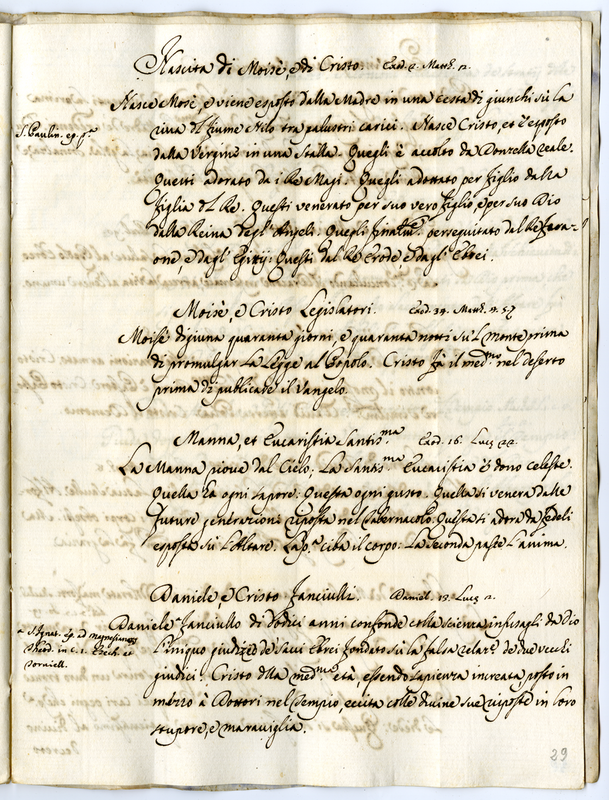 Nascita di Moisè, e di Cristo. Exod. 2. Matth. 2.
Nasce Mosè, e viene esposto dalla Madre in una cesta di giunchi sù la
S. Paulin. ep. 4.ª
riva del fiume Nilo tra palustri carici. Nasce Cristo, et è esposto
dalla Vergine in una stalla. Quegli è accolto da Donzella reale.
Questi adorato da i Re Magi. Quegli adottato per figlio dalla
figlia del Re. Questi venerato per suo vero figlio, e per suo Dio
dalla Reina degl'Angeli. Quegli finalm.te perseguitato dal Re Fara-
one, e dagl'Egizij: Questi dal Re Erode e dagl'Ebrei.
Moisè, e Cristo Legislatori. Exod. 34. Matth. 4. 5.
Moisè digiuna quaranta giorni, e quaranta notti sù'l monte prima
di promulgar La Legge al Popolo. Cristo fà il med.mo nel deserto
prima di publicare il Vangelo.
Manna, et Eucaristia Santis.ma Exod. 16. Luc. 22.
La Manna piove dal Cielo: La Santis.ma Eucaristia è dono celeste.
Quella ha ogni sapore: Questa ogni gusto. Quella si venera dalle
future generazioni riposta nel Tabernacolo: Questa si adora da fedeli
esposta sù l'Altare. La p.ª ciba il corpo: La seconda pasce l'anima.
Daniele, e Cristo fanciulli. Daniel. 13. Luc. 2.
Daniele ª fanciullo di dodici anni confonde colla scienza infusagli da Dio
ª S. Ignat. Ep. ad Magnesianos
Theod. in c. 1. Ezech. et
Torniell.
l'iniquo giudizio de' savi Ebrei fondato sù la falsa relaz.e de due vecchi
giudici. Cristo della med.ma età, essendo sapienza increata, posto in
mezzo à Dottori nel Tempio, eccita colle divine sue risposte in loro
stupore, e maraviglia.
29